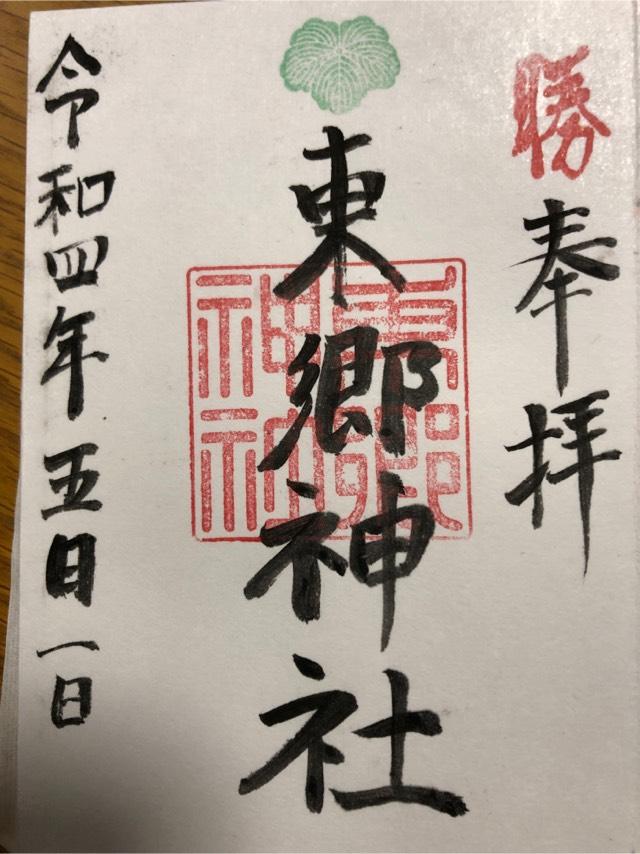 勝
奉拝
東郷神社
東郷神社
令和四年五月一日